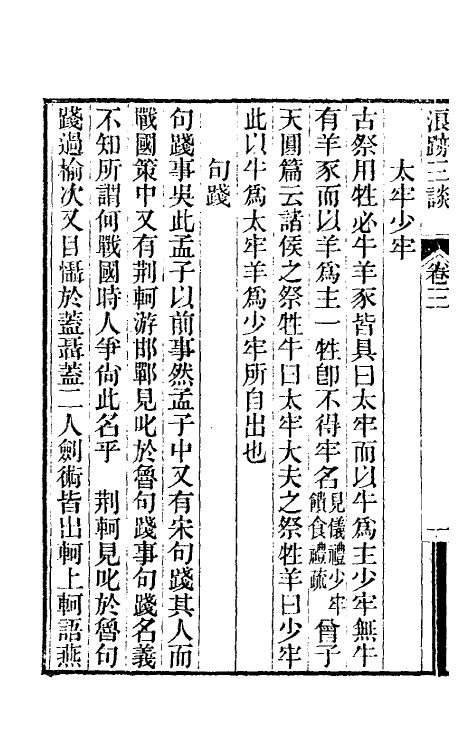 浪跡三談 卷三 一
太牢少牢
古祭用牲必牛羊豕皆具曰太牢而以牛爲主少牢無牛
有羊豕而以羊爲主一牲卽不得牢名見儀禮少牢饋食禮疏曾子
天圓篇云諸侯之祭牲牛曰太牢大夫之祭牲羊曰少牢
此以牛爲太牢羊爲少牢所自出也
句踐
句踐事吳此孟子以前事然孟子中又有宋句踐其人而
戰國策中又有荆軻游邯鄲見叱於魯句踐事句踐名義
不知所謂何戰國時人爭尙此名乎 荆軻見叱於魯句
踐過榆次又目懾於蓋聶蓋二人劍術皆出軻上軻語燕